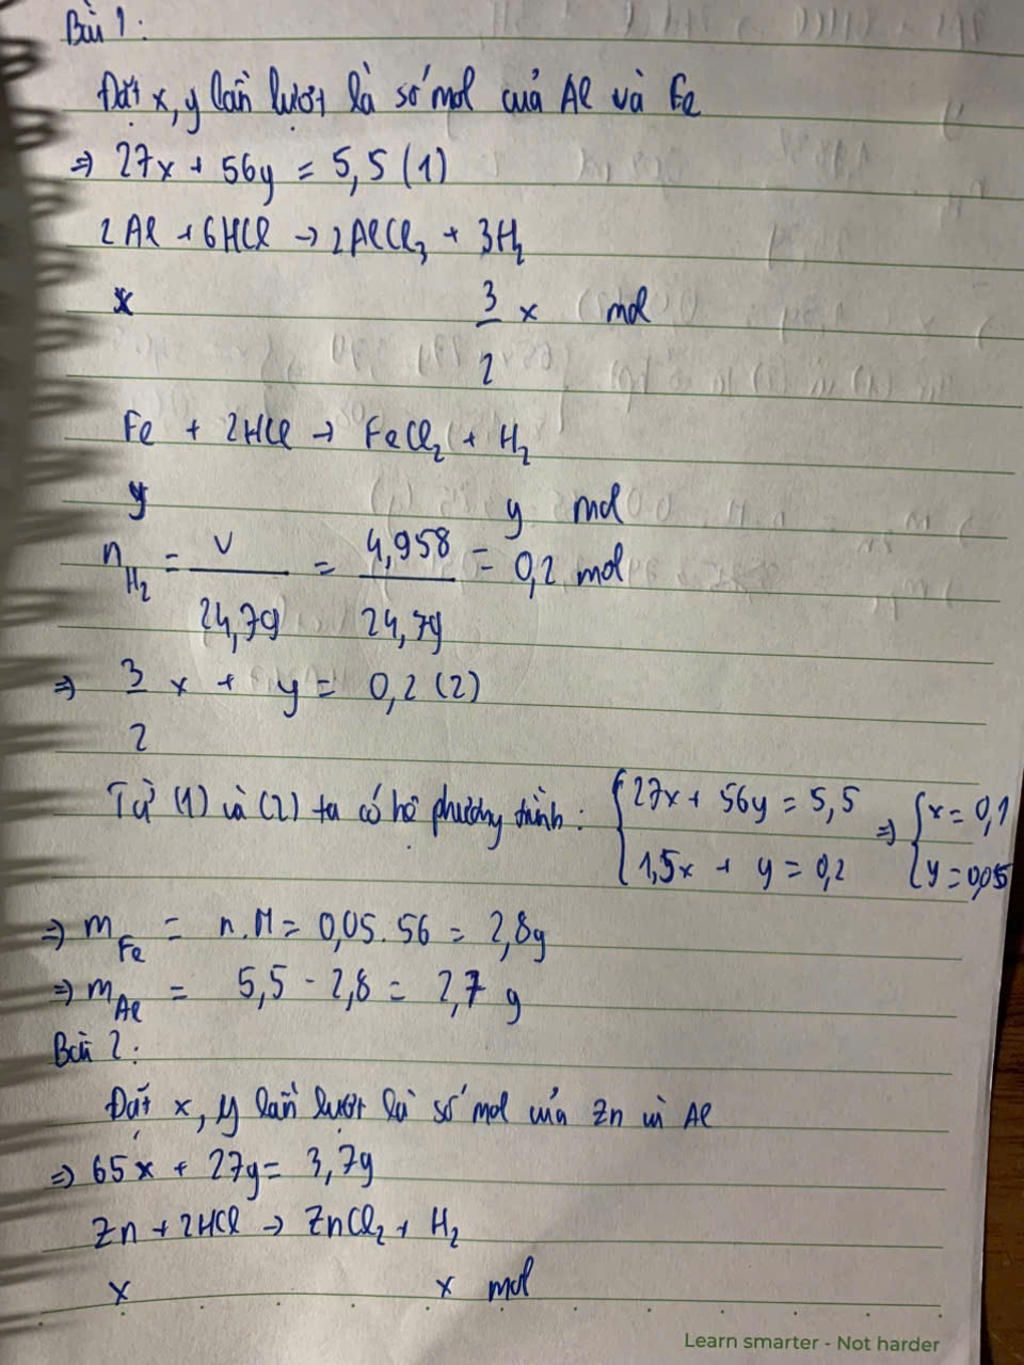 Bài 1:
Đặt x, y lần lượt là số mol của Al và Fe
⇒ 27x + 56y = 5,5 (1)
2Al + 6HCl → 2AlCl₃ + 3H₂
x 3/2 x mol
Fe + 2HCl → FeCl₂ + H₂
y y mol
n H₂ = V/24,79 = 4,958/24,79 = 0,2 mol
⇒ 3/2 x + y = 0,2 (2)
Từ (1) và (2) ta có hệ phương trình: { 27x + 56y = 5,5 ⇒ { x = 0,1
1,5x + y = 0,2 y = 0,05
⇒ m Fe = n.M = 0,05.56 = 2,8g
⇒ m Al = 5,5 - 2,8 = 2,7 g
Bài 2:
Đặt x, y lần lượt là số mol của Zn và Al
⇒ 65x + 27y = 3,79
Zn + 2HCl → ZnCl₂ + H₂
x x mol
Learn smarter - Not harder